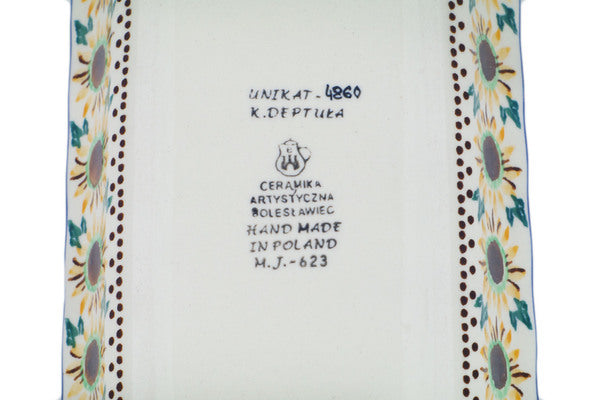 UNIKAT - 4860
K. DEPTUŁA
CERAMIKA
ARTYSTYCZNA
BOLESŁAWIEC
HAND MADE
IN POLAND
M.J.-623